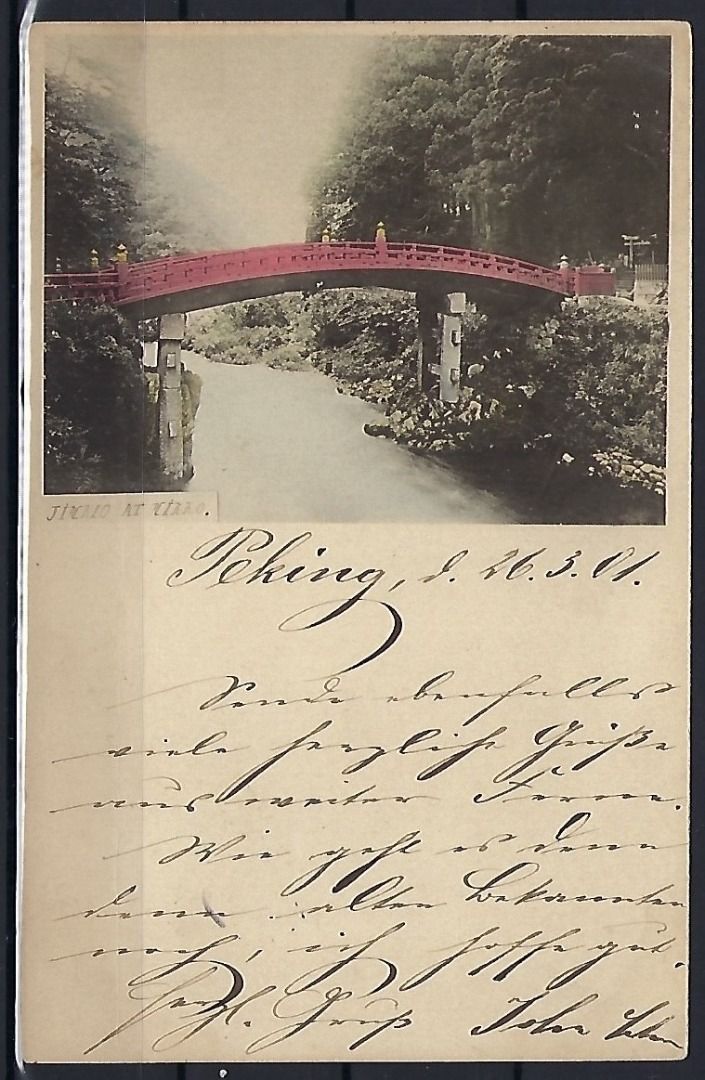 AT NIKKO.
Peking, d. 26.3.01.
Sende ebenfalls
viele herzliche Grüße
aus weiter Ferne.
Wie geht es denn
denn alten Bekannten
noch, ich hoffe gut.
herzl. Gruß John